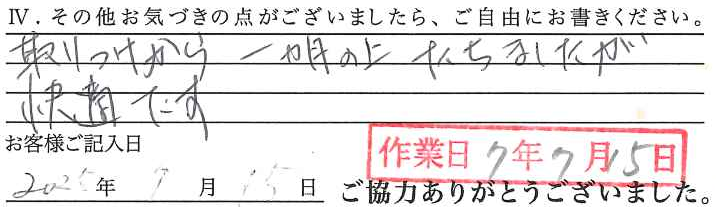 Ⅳ．その他お気づきの点がございましたら、ご自由にお書きください。
取りつけから 一ヶ月の上 たちましたが
快適です
お客様ご記入日
作業日 7年7月15日
2025年 7月 15日 ご協力ありがとうございました。